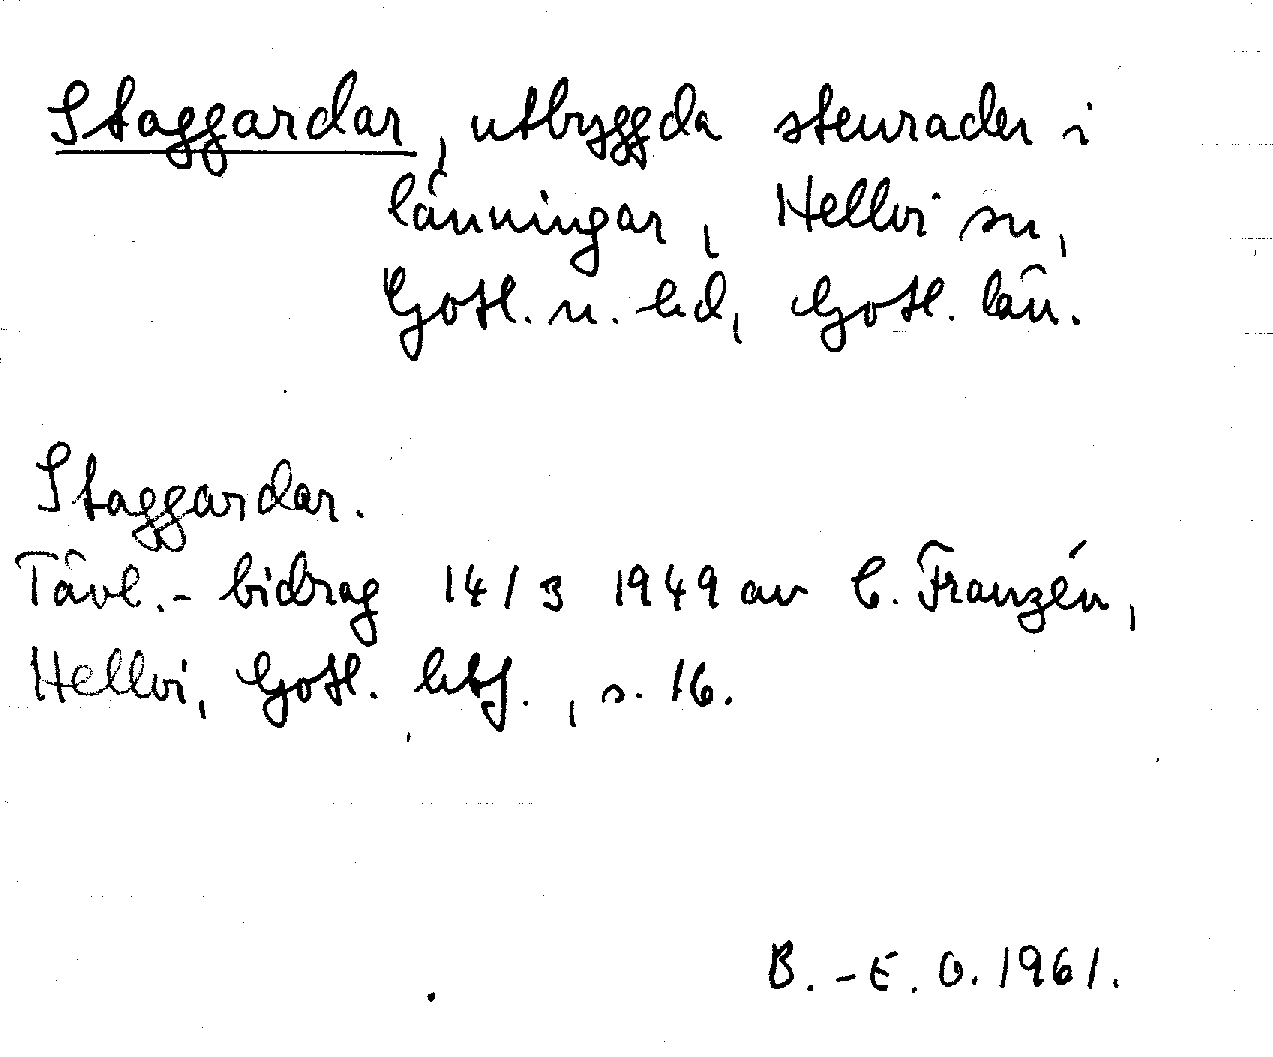 Staggardar, utbyggda stenrader i
länningar, Hellvi sn,
Gotl. n. hd, Gotl. län.
Staggardar.
Tävl.-bidrag 14/3 1949 av C. Franzén,
Hellvi, Gotl. lbf., s. 16.
B.-E. O. 1961.